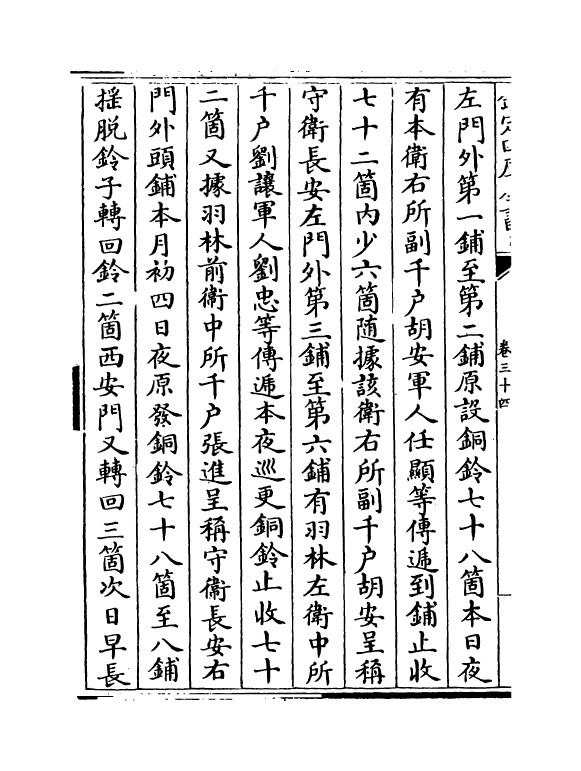 左門外第一鋪至第二鋪原設銅鈴七十八箇本日夜
有本衛右所副千户胡安軍人任顯等傳遞到鋪止收
七十二箇内少六箇随據該衛右所副千户胡安呈稱
守衛長安左門外第三鋪至第六鋪有羽林左衛中所
千户劉讓軍人劉忠等傳遞本夜巡更銅鈴止收七十
二箇又據羽林前衛中所千户張進呈稱守衛長安右
門外頭鋪本月初四日夜原發銅鈴七十八箇至八鋪
揺脱鈴子轉回鈴二箇西安門又轉回三箇次日早長
卷三十四